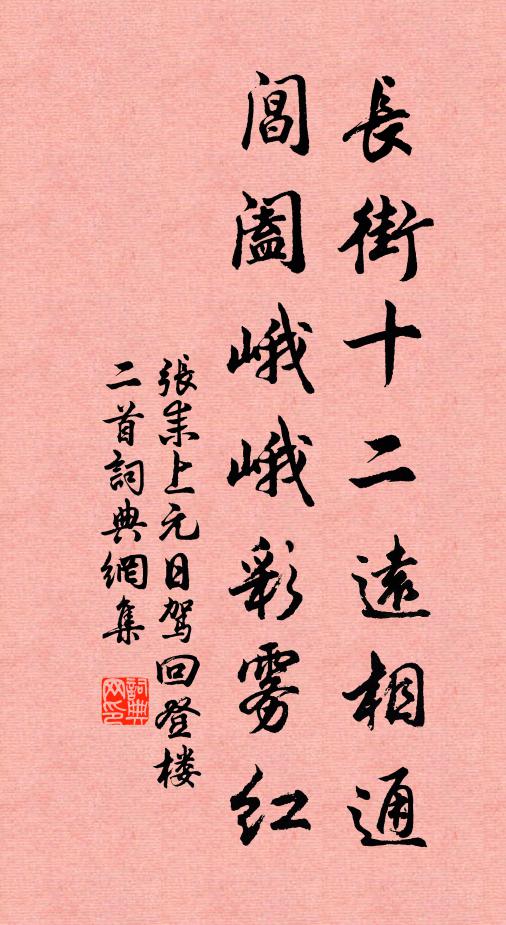 長街十二遠相通
閶闔峨峨彩雾红
張耒上元日駕回登楼
二首詞典網集
詞典
网印